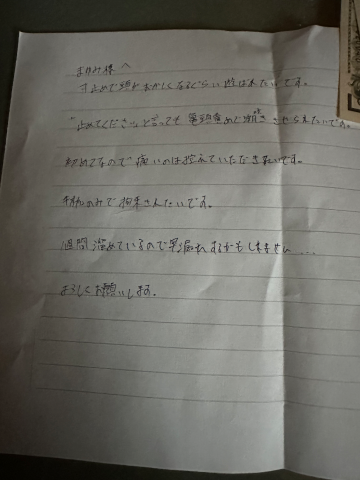 まゆみ様へ
寸止めで頭がおかしくなるぐらい遊ばれたいです。
"止めてください"と言っても亀頭責めで潮吹きさせられたいです。
初めてなので痛いのは控えていただきたいです。
手枷のみで拘束されたいです。
週間溜めているので早漏れするかもしれません...
よろしくお願いします。